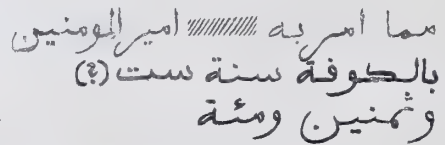 مما امر به امير المومنين
بالكوفة سنة ست (؟)
وثمنين ومئة